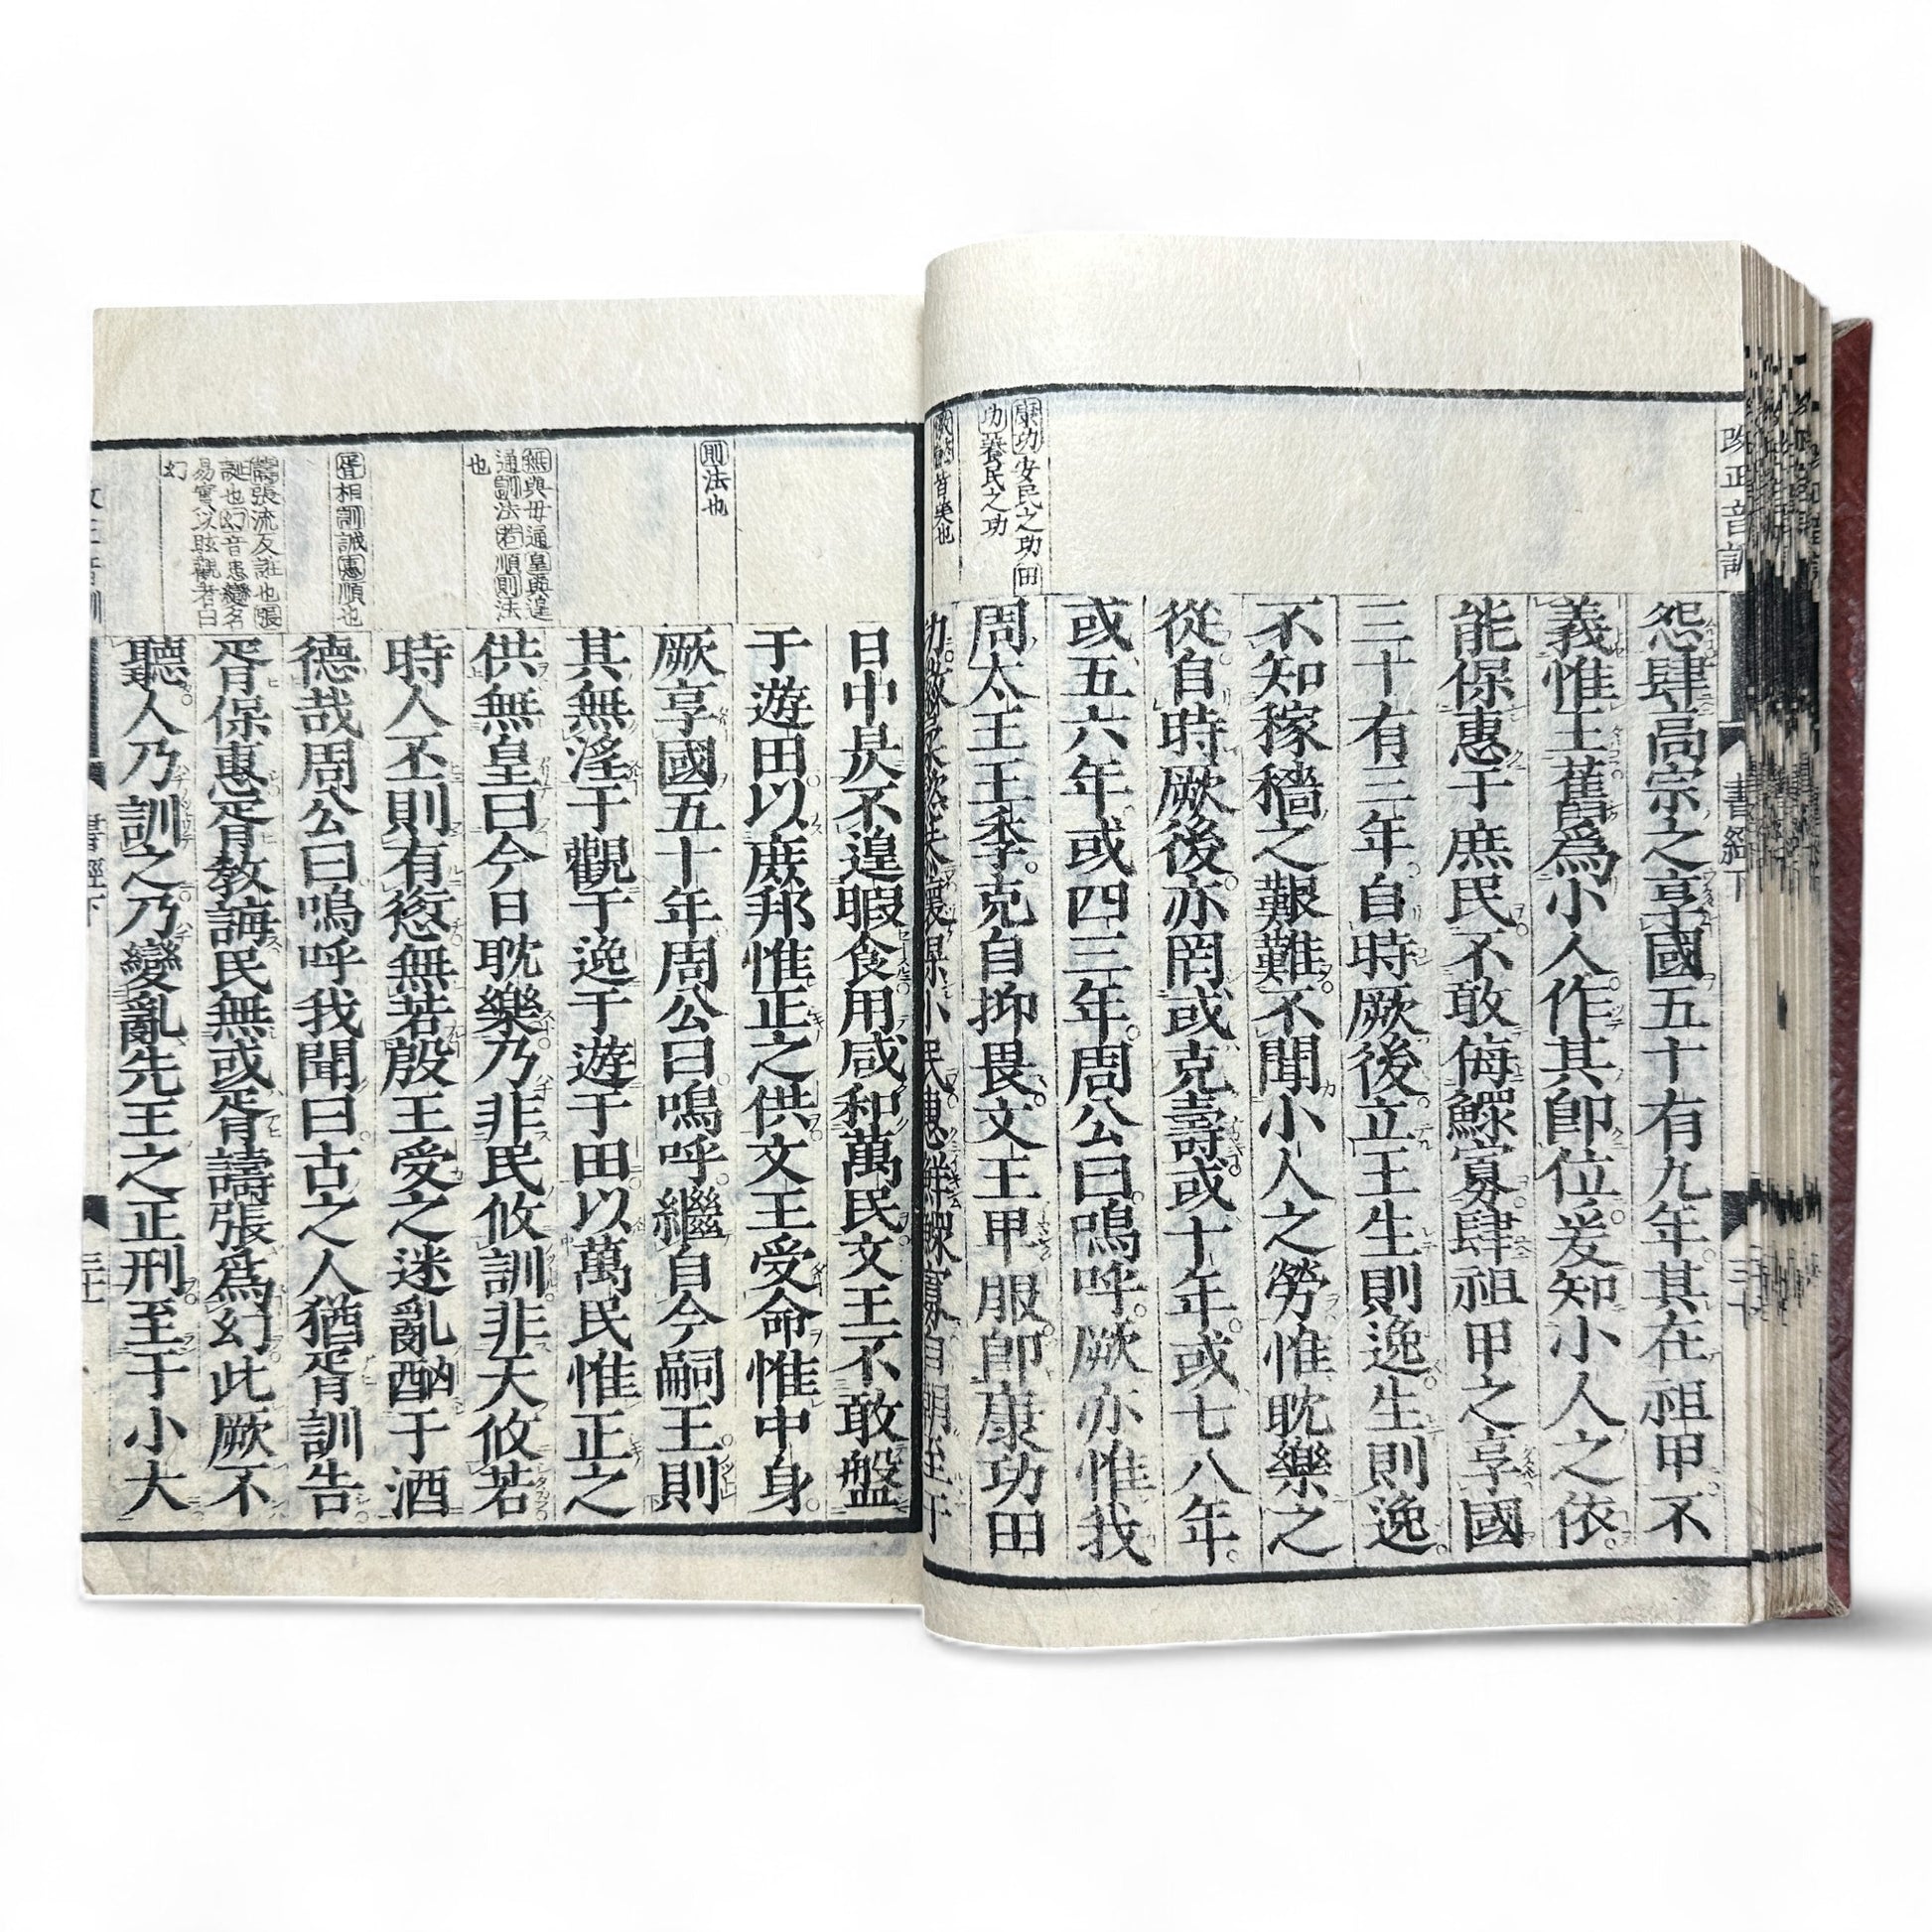 改正音訓
書經下
怨肆高宗之享國五十有九年其在祖甲不
義惟王舊爲小人作其卽位爰知小人之依
能保惠于庶民不敢侮鰥寡肆祖甲之享國
三十有三年自時厥後立王生則逸生則逸
不知稼穡之艱難不聞小人之勞惟耽樂之
從自時厥後亦罔或克壽或十年或七八年
或五六年或四三年周公曰嗚呼厥亦惟我
康功安民之功田
功養民之功
周太王王季克自抑畏文王卑服卽康功田
皆美也
功徽柔懿恭懷保小民惠鮮鰥寡自朝至于
日中昃不遑暇食用咸和萬民文王不敢盤
于遊田以庶邦惟正之供文王受命惟中身
則法也
厥享國五十年周公曰嗚呼繼自今嗣王則
其無淫于觀于逸于遊于田以萬民惟正之
無與毋通皇與遑
通訓法若順則法
也
供無皇曰今日耽樂乃非民攸訓非天攸若
時人丕則有愆無若殷王受之迷亂酗于酒
胥相訓誡惠順也
德哉周公曰嗚呼我聞曰古之人猶胥訓告
譸張流反誑也張
誕也幻音患變名
易實以眩觀者曰
幻
胥保惠胥教誨民無或胥譸張爲幻此厥不
聽人乃訓之乃變亂先王之正刑至于小大
書經下